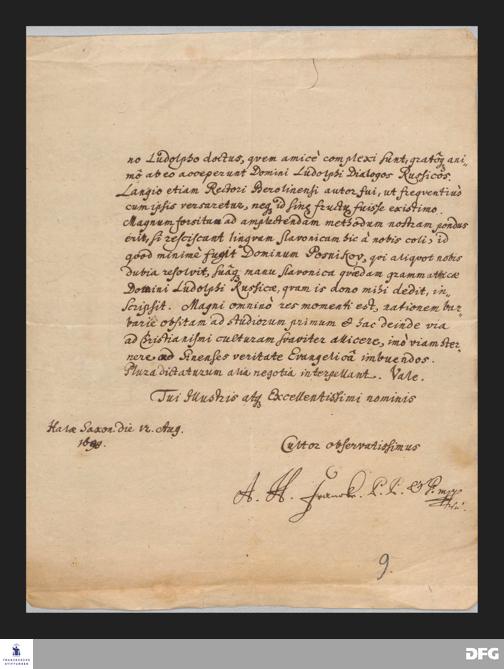 no Lüdolpho doctus, qvem amicè complexi sunt, gratoq; ani-
mô ab eo acceperunt Domini Lüdolphi Dialogos Russicos.
Langio etiam Rectori Berolinensi autor fui, ut freqventiùs
cum ipsis versaretur, neq; id sine fructu fuisse existimo.
Magnum forsitan ad amplectendam methodum nostram pondus
erit, si resciscant lingvam slavonicam hic à nobis coli, id
qvod minimè fugit Dominum Posnikov, qvi aliqvot nobis
dubia resolvit, suâq; manu slavonica qvædam grammaticæ
Domini Lüdolphi Russicæ, qvam is dono mihi dedit, in-
scripsit. Magni omninò res momenti est, nationem bar-
barie obsitam ad studiorum primum & hac deinde via
ad Christianismi culturam suaviter allicere, imò viam ster-
nere ad Sinenses veritate Evangelicâ imbuendos.
Plura dictaturum alia negotia interpellant. Vale.
Tui Illustris atq; Excellentissimi nominis
Halæ Saxon. die 12. Aug.
1699.
Cultor observatissimus
A. H. Francke. P. P. & P.
9.
FRANCKESCHE
STIFTUNGEN
DFG